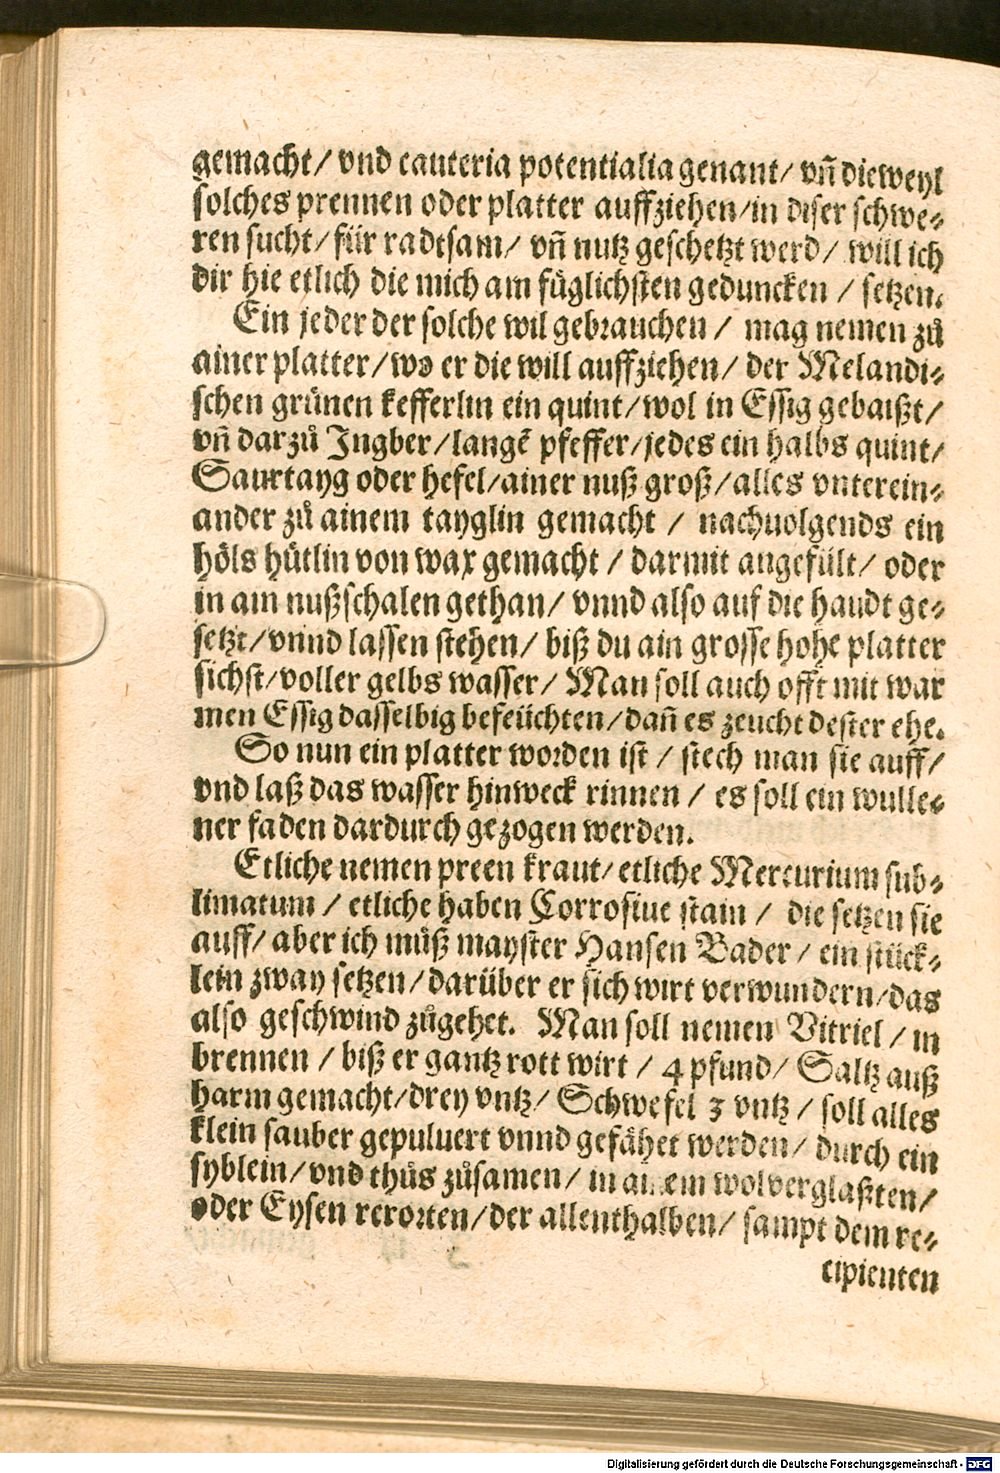 gemacht/ vnd cauteria potentialia genant/ vñ dieweyl
solches prennen oder platter auffziehen/in diser schwe⸗
ren sucht/ für radtsam/ vñ nutz geschetzt werd/ will ich
dir hie etlich die mich am fůglichsten geduncken / setzen.
Ein jeder der solche wil gebrauchen / mag nemen zů
ainer platter/wo er die will auffziehen/ der Melandi⸗
schen grünen kefferlin ein quint/wol in Essig gebaißt/
vñ darzů Jngber/langẽ pfeffer/jedes ein halbs quint/
Saurtayg oder hefel/ainer nuß groß/alles vnterein⸗
ander zů ainem tayglin gemacht / nachuolgends ein
höls hütlin von wax gemacht / darmit angefült/ oder
in am nußschalen gethan/ vnnd also auf die haudt ge⸗
setzt/vnnd lassen stehen/ biß du ain grosse hohe platter
sichst/voller gelbs wasser/ Man soll auch offt mit war
men Essig dasselbig befeüchten/dañ es zeucht dester ehe.
So nun ein platter worden ist / stech man sie auff/
vnd laß das wasser hinweck rinnen / es soll ein wulle⸗
ner faden dardurch gezogen werden.
Etliche nemen preen kraut/ etliche Mercurium sub⸗
limatum / etliche haben Corrosiue stain / die setzen sie
auff/ aber ich můß mayster Hansen Bader / ein stück⸗
lein zway setzen/darüber er sich wirt verwundern/das
also geschwind zůgehet. Man soll nemen Vitriel / in
brennen / biß er gantz rott wirt / 4 pfund/ Saltz auß
harm gemacht/drey vntz/ Schwefel 3 vntz / soll alles
klein sauber gepuluert vnnd gefähet werden/ durch ein
syblein/vnd thůs zůsamen/ in ainem wolverglaßten/
oder Eysen rerorten/der allenthalben/ sampt dem re⸗
cipienten
Digitalisierung gefördert durch die Deutsche Forschungsgemeinschaft - DFG